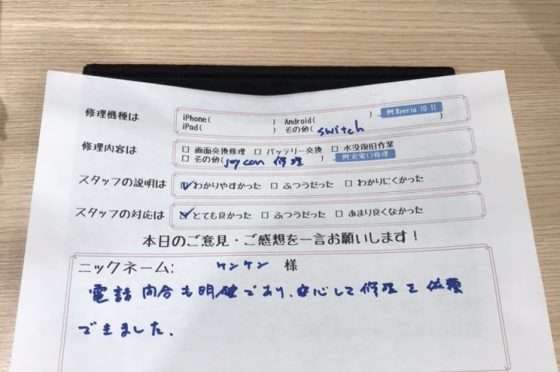 修理機種は
iPhone( ) Android( ) 例 Xperia 10 II
iPad( ) その他( switch )
修理内容は
□ 画面交換修理 □ バッテリー交換 □ 水没復旧作業
□ その他( joycon 修理 ) 例 充電口修理
スタッフの説明は ☑ わかりやすかった □ ふつうだった □ わかりにくかった
スタッフの対応は ☑ とても良かった □ ふつうだった □ あまり良くなかった
本日のご意見・ご感想を一言お願いします!
ニックネーム: ケンケン 様
電話問合も明確であり、安心して修理を依頼
できました。